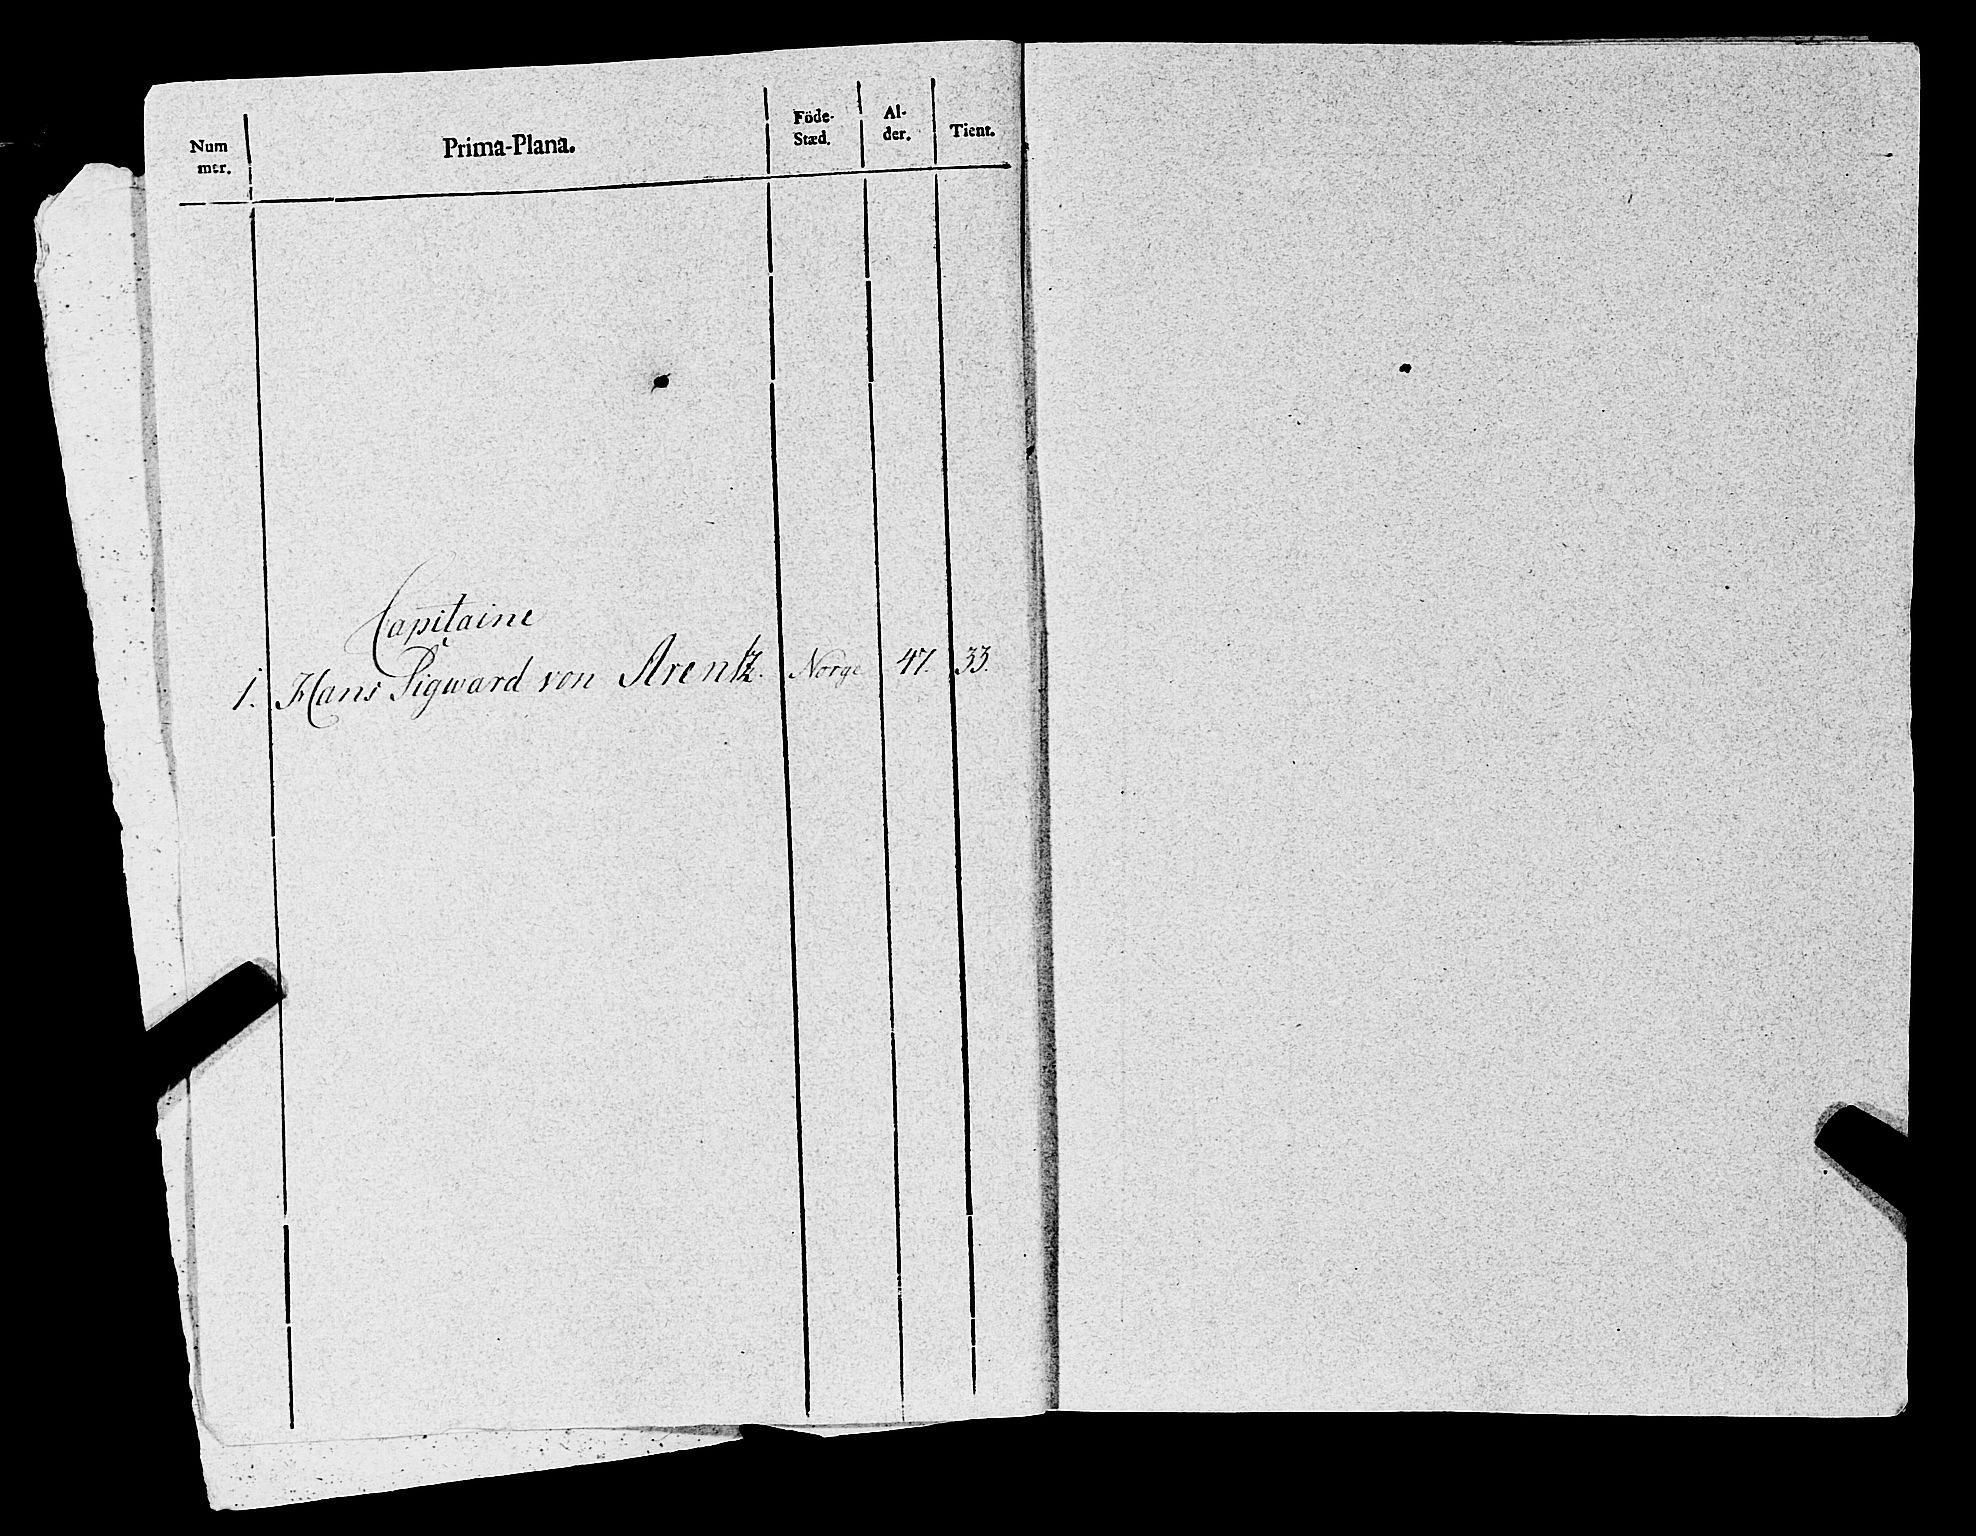 Num mer. Prima-Plana. Föde-Stæd. Al-der. Tient.
Capitaine
1. Hans Sigward von Arentz. Norge 47. 33.